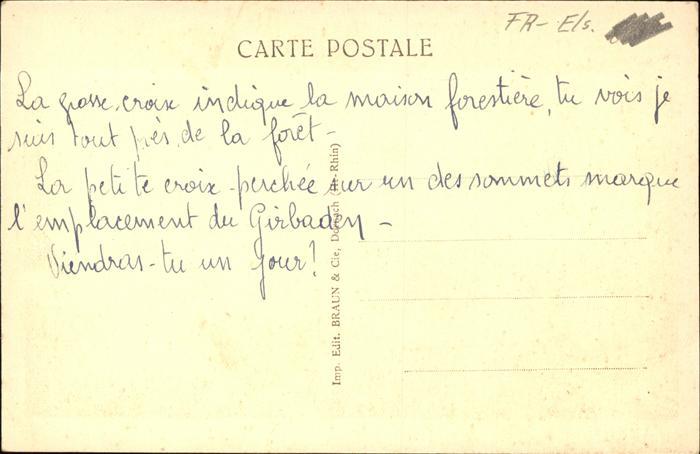 FR- Els.
CARTE POSTALE
La grosse croix indique la maison forestière, tu vois je
suis tout près de la forêt -
La petite croix perchée sur un des sommets marque
l'emplacement du Girbaden -
Viendras-tu un jour!
Imp. Edit. BRAUN & Cie, Dornach (Ht-Rhin)